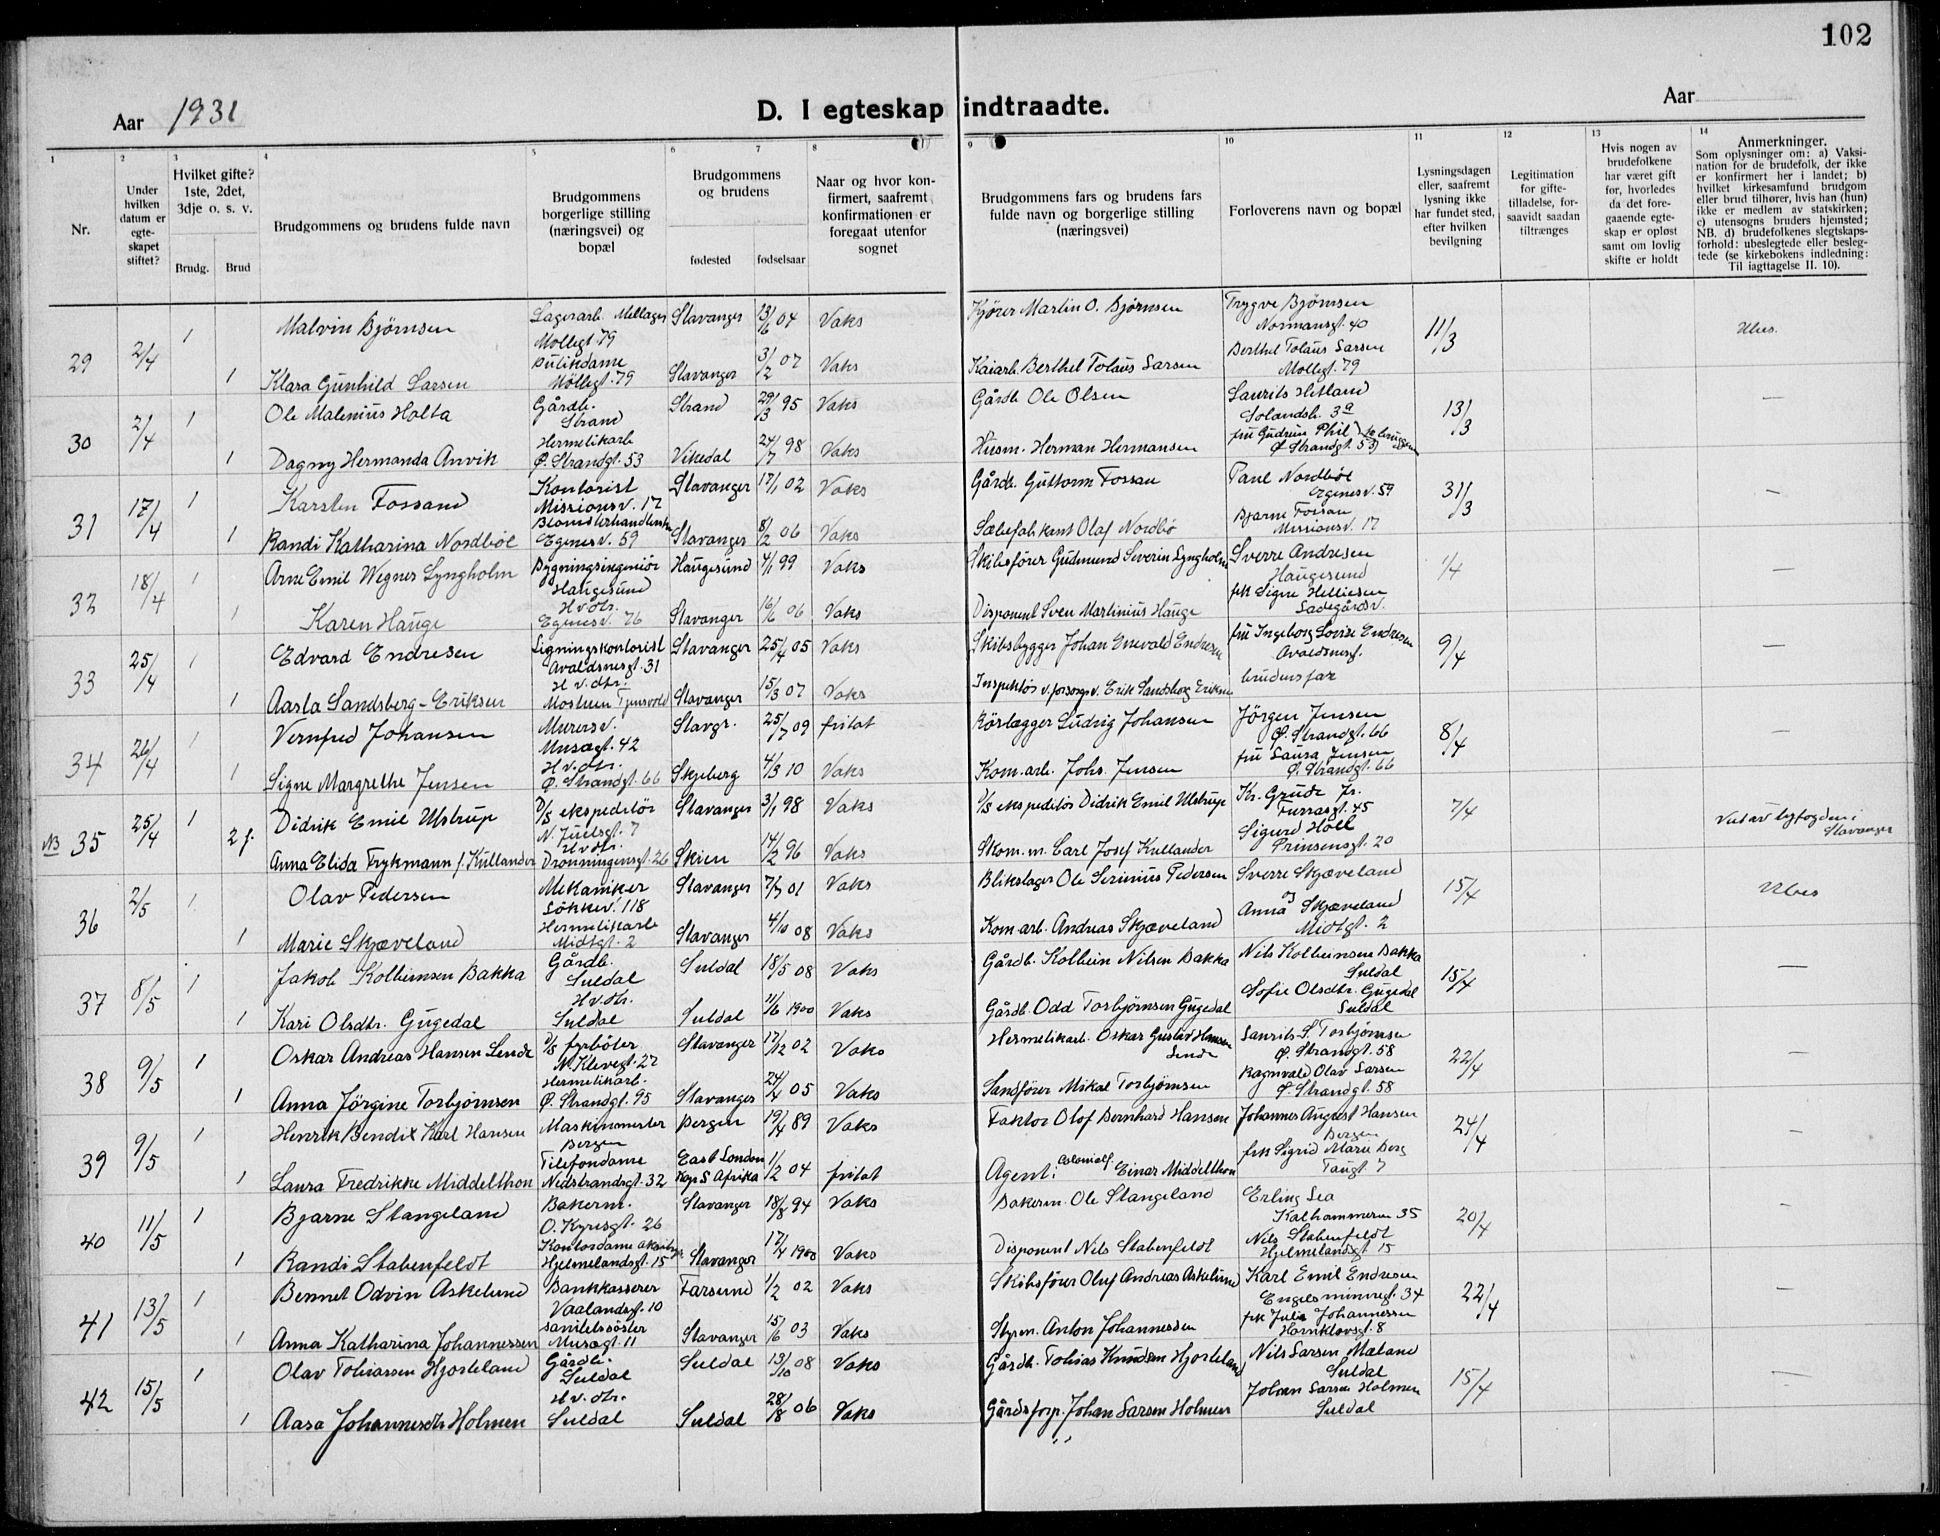 102
Aar 1931
D. I egteskap indtraadte.
Aar
1 2 3 4 5 6 7 8 9 10 11 12 13 14
Nr.
Under hvilken datum er egte-skapet stiftet?
Hvilket gifte? 1ste, 2det, 3dje o. s. v.
Brudg. Brud
Brudgommens og brudens fulde navn
Brudgommens borgerlige stilling (næringsvei) og bopæl
Brudgommens og brudens
fødested fødselsaar
Naar og hvor kon-firmert, saafremt konfirmationen er foregaat utenfor sognet
Brudgommens fars og brudens fars fulde navn og borgerlige stilling (næringsvei)
Forloverens navn og bopæl
Lysningsdagen eller, saafremt lysning ikke har fundet sted, efter hvilken bevilgning
Legitimation for gifte-tilladelse, for-saavidt saadan tiltrænges
Hvis nogen av brudefolkene har været gift før, hvorledes da det fore-gaaende egte-skap er opløst samt om lovlig skifte er holdt
Anmerkninger.
Som oplysninger om: a) Vaksi-nation for de brudefolk, der ikke er konfirmert her i landet; b) hvilket kirkesamfund brudgom eller brud tilhører, hvis han (hun) ikke er medlem av statskirken; c) utensogns bruders hjemsted; NB. d) brudefolkenes slegtskaps-forhold: ubeslegtede eller besleg-tede (se kirkebokens indledning: Til iagttagelse II. 10).
29 2/4 1 Malvin Bjørnsen Lagerarb. Mellager Møllegt. 79 Stavanger 13/6 04 Vaks Kjører Martin O. Bjørnsen Trygve Bjørnsen Normansgt. 40 11/3 Ubes.
1 Klara Gunhild Larsen Butikdame Møllegt. 79 Stavanger 3/2 07 Vaks Kaiarb. Berthel Tolaus Larsen Berthel Tolaus Larsen Møllegt. 79
30 2/4 1 Ole Malenius Holta Gårdb. Strand Strand 29/3 95 Vaks Gårdb. Ole Olsen Laurits Hetland Solandsb. 3a 13/3 —
1 Dagny Hermanda Anvik Hermetikarb Ø. Strandgt. 53 Vikedal 24/7 98 Vaks Husm. Herman Hermansen fru Gudrun Phil Ø. Strandgt. 53
31 17/4 1 Karsten Fossand Kontorist Missionsv. 17 Stavanger 17/1 02 Vaks Gårdb. Guttorm Fossan Paul Nordböe Egenesv. 59 31/3 —
1 Randi Katharina Nordböe Blomsterhandlerske Egenesv. 59 Stavanger 8/2 06 Vaks Sæbefabrikant Olaf Nordbø Bjarne Fossan Missionsv. 17
32 18/4 1 Arne Emil Wegner Lyngholm Bygningsingeniør Haugesund Haugesund 4/1 99 Vaks Skibsfører Gudmund Severin Lyngholm Sverre Andresen Haugesund 1/4 —
1 Karen Hauge H v dtr. Egenesv. 76 Stavanger 16/6 06 Vaks Disponent Sven Martinius Hauge frk Signe Helliesen Ladegårdsv.
33 25/4 1 Edvard Endresen Ligningskontorist Avaldsnesgt. 31 Stavanger 25/4 05 Vaks Skibsbygger Johan Enevald Endresen fru Ingeborg Lovise Endresen Avaldsnesgt. 9/4 —
1 Aasta Sandsberg-Eriksen H v. dtr. Mostuen Tjensvold Stavanger 15/3 07 Vaks Inspektør v. forsorgsv. Erik Sandsberg Eriksen brudens far
34 26/4 1 Vernfred Johansen Murersv. Musegt. 42 Stavgr. 25/7 09 fritat Rörlægger Ludvig Johansen Jörgen Jensen Ø. Strandgt. 66 8/4 —
1 Signe Margrethe Jensen H v. dtr. Ø. Strandgt. 66 Skjeberg 4/3 10 Vaks Kom.arb. Johs. Jensen fru Laura Jensen Ø. Strandgt. 66
NB 35 25/4 1 Didrik Emil Ulstrup D/S ekspeditör N. Juelsgt. 7 Stavanger 3/1 98 Vaks D/S ekspeditör Didrik Emil Ulstrup Kr. Grude jr. Furrasgt. 45 7/4 Viet av byfogden i Stavanger
2 f. Anna Elida Trykmann f. Kullander H v dtr. Dronningensgt. 26 Skien 14/2 96 Vaks Skom. m. Carl Josef Kullander Sigurd Höll Prinsensgt. 20
36 2/5 1 Olav Pedersen Mekaniker Løkkev. 118 Stavanger 7/7 01 Vaks Blikslager Ole Serinius Pedersen Sverre Skjæveland 15/4 Ubes
1 Marie Skjæveland Hermetikarb Midtgt. 2 Stavanger 4/10 08 Vaks Kom.arb. Andreas Skjæveland og Anna Skjæveland Midtgt. 2
37 8/5 1 Jakob Kolbeinsen Bakka Gårdb. Suldal Suldal 18/5 08 Vaks Gårdb. Kolbein Nilsen Bakka Nils Kolbeinsen Bakka Suldal 15/4 —
1 Kari Olsdtr. Gugedal H v. dtr. Suldal Suldal 11/6 1900 Vaks Gårdb. Odd Torbjørnsen Gugedal Sofie Olsdtr. Gugedal Suldal
38 9/5 1 Oskar Andreas Hansen Lende D/S fyrböter N. Klevegt. 27 Stavanger 17/12 02 Vaks Hermetikarb. Oskar Gustav Hansen Lende Laurits S. Torbjörnsen Ø. Strandgt. 58 22/4 —
1 Anna Jörgine Torbjørnsen Hermetikarb. Ø. Strandgt. 95 Stavanger 24/4 05 Vaks Sandfører Mikal Torbjørnsen Ragnvald Olav Larsen Ø. Strandgt. 58
39 9/5 1 Henrik Bendix Karl Hansen Maskinmester Bergen Bergen 19/4 89 Vaks Faktor Olof Bernhard Hansen Johannes August Hansen Bergen 24/4 —
1 Laura Fredrikke Middelthon Telefondame Nedstrandsgt. 32 East London Kap S Afrika 1/2 04 fritat Agent i Colonialf. Einar Middelthon frk Sigrid Marie Berg Taugt 7
40 11/5 1 Bjarne Stangeland Bakerm. O. Kyresgt. 26 Stavanger 18/8 94 Vaks Bakerm. Ole Stangeland Erling Lea Kalhammeren 35 20/4 —
1 Randi Stabenfeldt Kontordame Hjelmelandsgt. 15 Stavanger 17/4 1900 Vaks Disponent Nils Stabenfeldt Nils Stabenfeldt Hjelmelandsgt 15
41 13/5 1 Bennet Odvin Askelund Bankkasserer Vaalandsgt. 10 Farsund 1/2 02 Vaks Skibsfører Oluf Andreas Askelund Karl Emil Endresen Engelsminnegt. 34 22/4 —
1 Anna Katharina Johannessen Sanitetssöster Musegt. 11 Stavanger 15/6 03 Vaks Styrm. Anton Johannessen frk Julie Johannessen Hornklovsgt. 8
42 15/5 1 Olav Tobiassen Hjorteland Gårdb. Suldal Suldal 13/10 08 Vaks Gårdb. Tobias Knudsen Hjorteland Nils Larsen Mæland Suldal 15/4 —
1 Aasa Johannesdtr Holmen H v. dtr. Suldal Suldal 28/8 06 Vaks Gårdsforp. Johan Larsen Holmen Johan Larsen Holmen Suldal